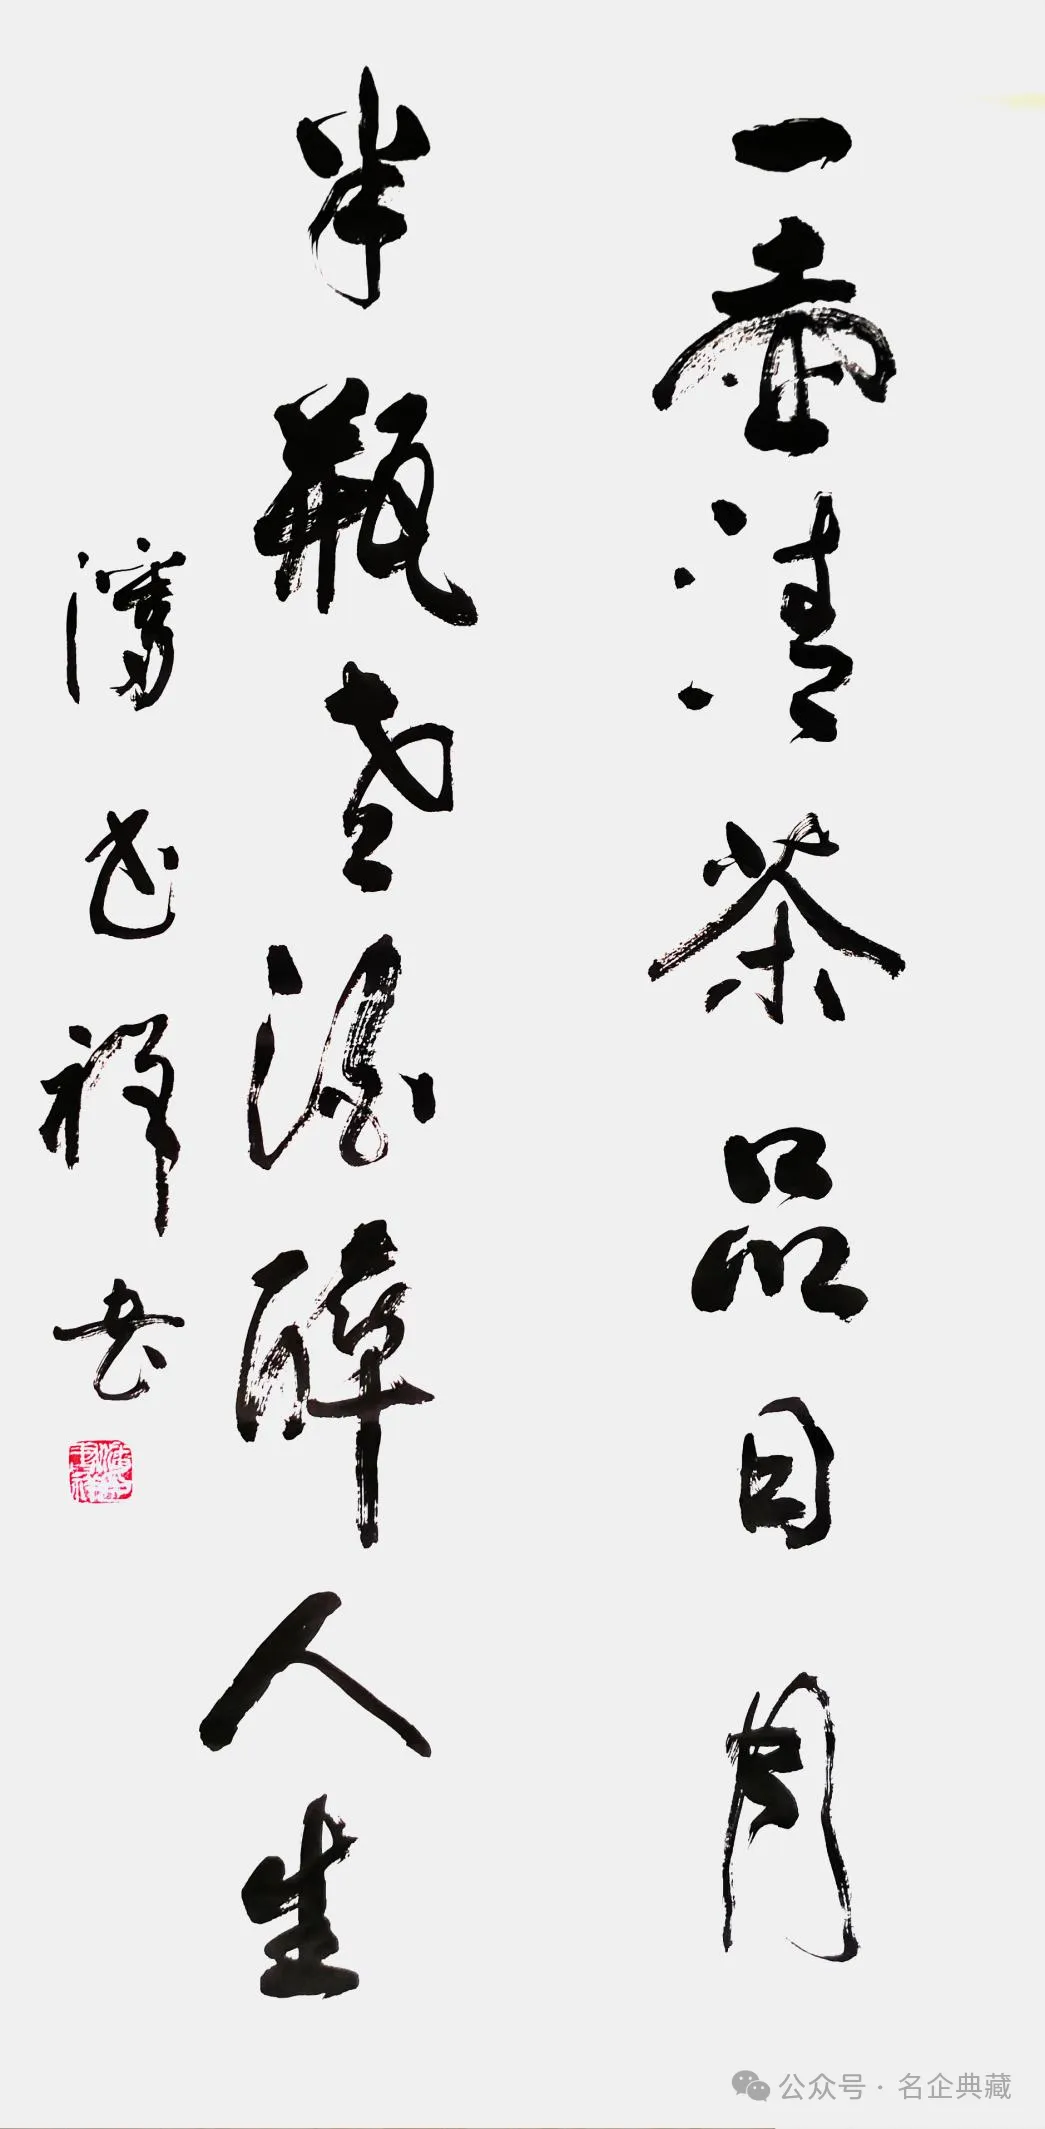 一壶清茶品日月
半瓶老酒醉人生
祥书
公众号 · 名企典藏